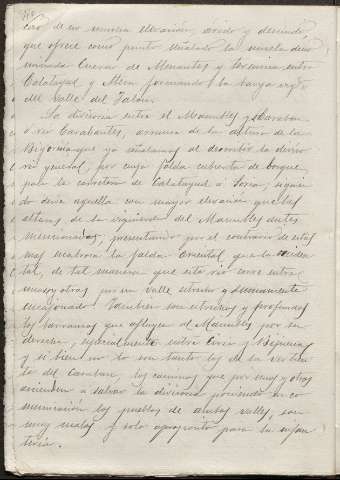 cerro de no mucha elevación, árido y desnudo
que ofrece como punto señalado la muela deno
minada Cuerno de Menantos y termina entre
Calatayud y Ateca formando la banya
del Valle del Jalon.
La divisoria entre el Manubles y el Caraban
ó rio Carabantes, arranca de la altura de la
Bigornia que ya señalamos al describir la divisoria
general, por cuya falda cubierta de bosque,
pasa la carretera de Calatayud á Soria, siguien
do desde aquella con mayor elevacion que las
alturas de la izquierda del Manubles antes
mencionadas; presentando por el contrario de estas
mas escabrosa la falda oriental, que la occiden
tal, de tal manera que este rio corre entre
unas y otras por un valle estrecho y sumamente
encajonado. Tambien son estrechos y profundos
los barrancos que afluyen al Manubles por su
derecha, especialmente entre Torrijo y Bijuesca
y si bien no lo son tanto los de la vertien
te del Caraban, los caminos que por unos y otros
ascienden á salvar la divisoria poniendo en co
municación los pueblos de ambos valles, son
muy malos y solo apropósito para la infan
tería.